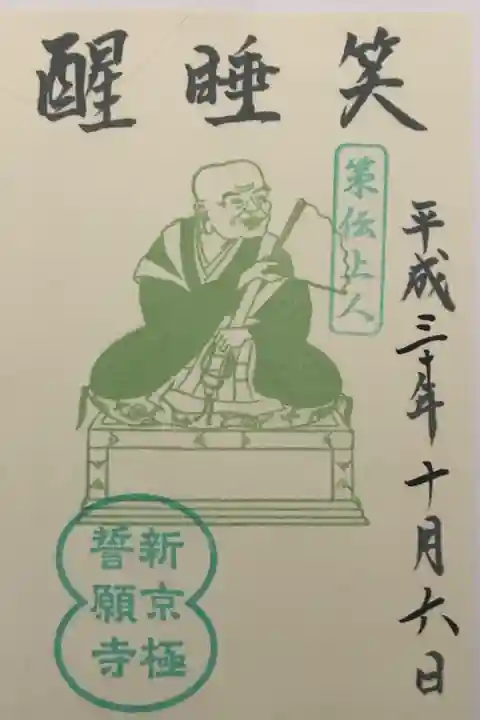 醒睡笑
策伝上人
平成三十年十月六日
新京極
誓願寺